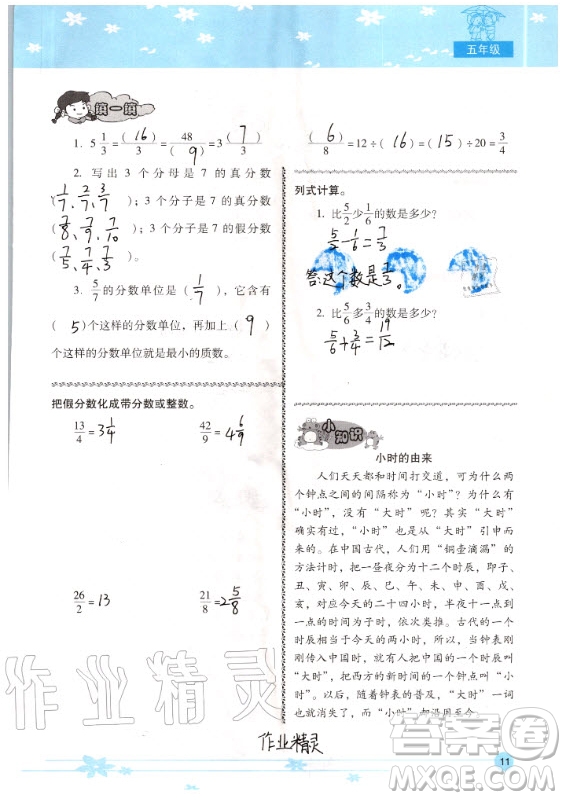 五年级
填一填
1. 5 1/3 = (16)/3 = 48/(9) = 3 (7)/3
2. 写出 3 个分母是 7 的真分数
(1/7、2/7、3/7)；3 个分子是 7 的真分数
(7/8、7/9、7/10)；3 个分子是 7 的假分数
(7/5、7/4、7/3)。
3. 5/7 的分数单位是 (1/7)，它含有
(5)个这样的分数单位，再加上 (9)
个这样的分数单位就是最小的质数。
把假分数化成带分数或整数。
13/4 = 3 1/4 42/9 = 4 6/9
26/2 = 13 21/8 = 2 5/8
(6)/8 = 12 ÷ (16) = (15) ÷ 20 = 3/4
列式计算。
1. 比 5/2 少 1/6 的数是多少?
5/2 - 1/6 = 7/3
答:这个数是7/3。
2. 比 5/6 多 3/4 的数是多少?
5/6 + 3/4 = 19/12
小知识
小时的由来
人们天天都和时间打交道，可为什么两
个钟点之间的间隔称为“小时”？为什么有
“小时”，没有“大时”呢？其实“大时”
确实有过，“小时”从“大时”引申而
来的。在中国古代，人们用“铜壶滴漏”的
方法计时，把一昼夜分为十二个时辰，即子、
丑、寅、卯、辰、巳、午、未、申、酉、戌、
亥，对应今天的二十四小时，半夜十一点到
一点的时间为子时，依次类推。古代的一个
时辰相当于今天的两小时。所以，当钟表刚
刚传入中国时，就有人把中国的一个时辰叫
“大时”，把西方的新时间一个钟点叫“小
时”。以后，随着钟表的普及，“大时”一词
也就消失了，而“小时”却沿用至今。
作业精灵
作业精灵
答案圈
MXQE.COM
11